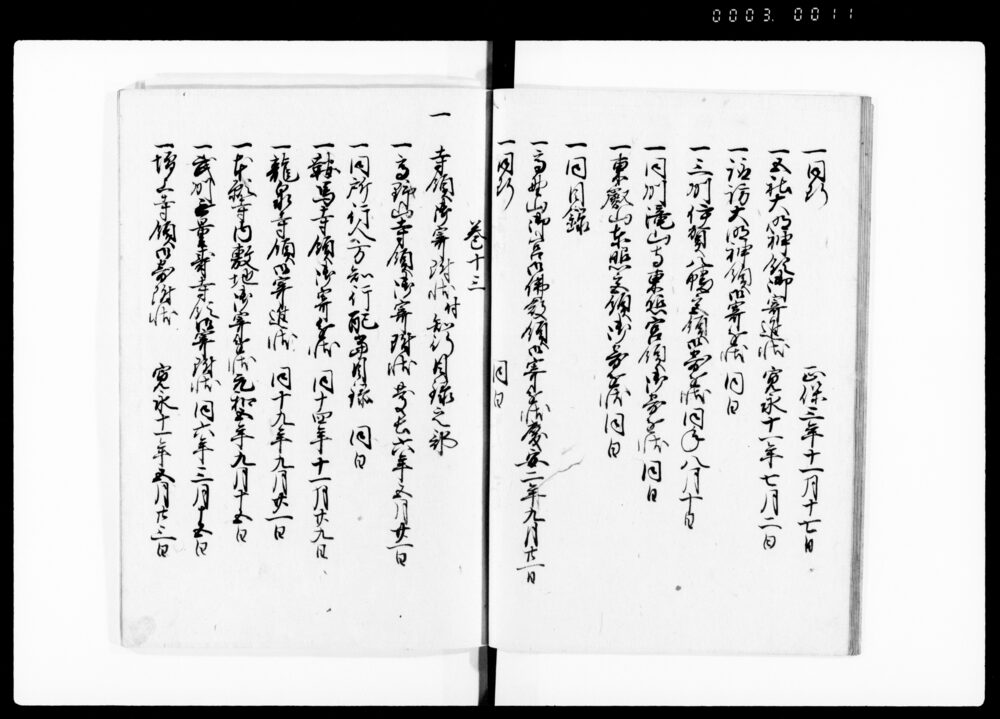 0003.0011
一同断　正保三年十一月十七日
一五社大明神領御寄進状　寛永十一年七月二日
一諏訪大明神領御寄進状　同日
一三州伊賀八幡宮領御寄進状　同年八月十日
一同州滝山寺東照宮領御寄進状　同日
一東叡山東照宮領御寄進状　同日
一同目録
一高野山御宮御佛殿領御寄進状　慶安二年九月廿一日
一同断　同日
巻十三
一寺領御寄附状付知行目録之部
一高野山寺領御寄附状　慶長六年五月廿一日
一同所行人方知行配当目録　同日
一鞍馬寺領御寄進状　同十四年十一月廿九日
一龍泉寺領御寄進状　同十九年九月廿一日
一本能寺内敷地御寄進状　元和元年九月十五日
一武州無量寿寺領御寄附状　同六年三月十五日
一増上寺領御寄附状　寛永十一年五月廿三日